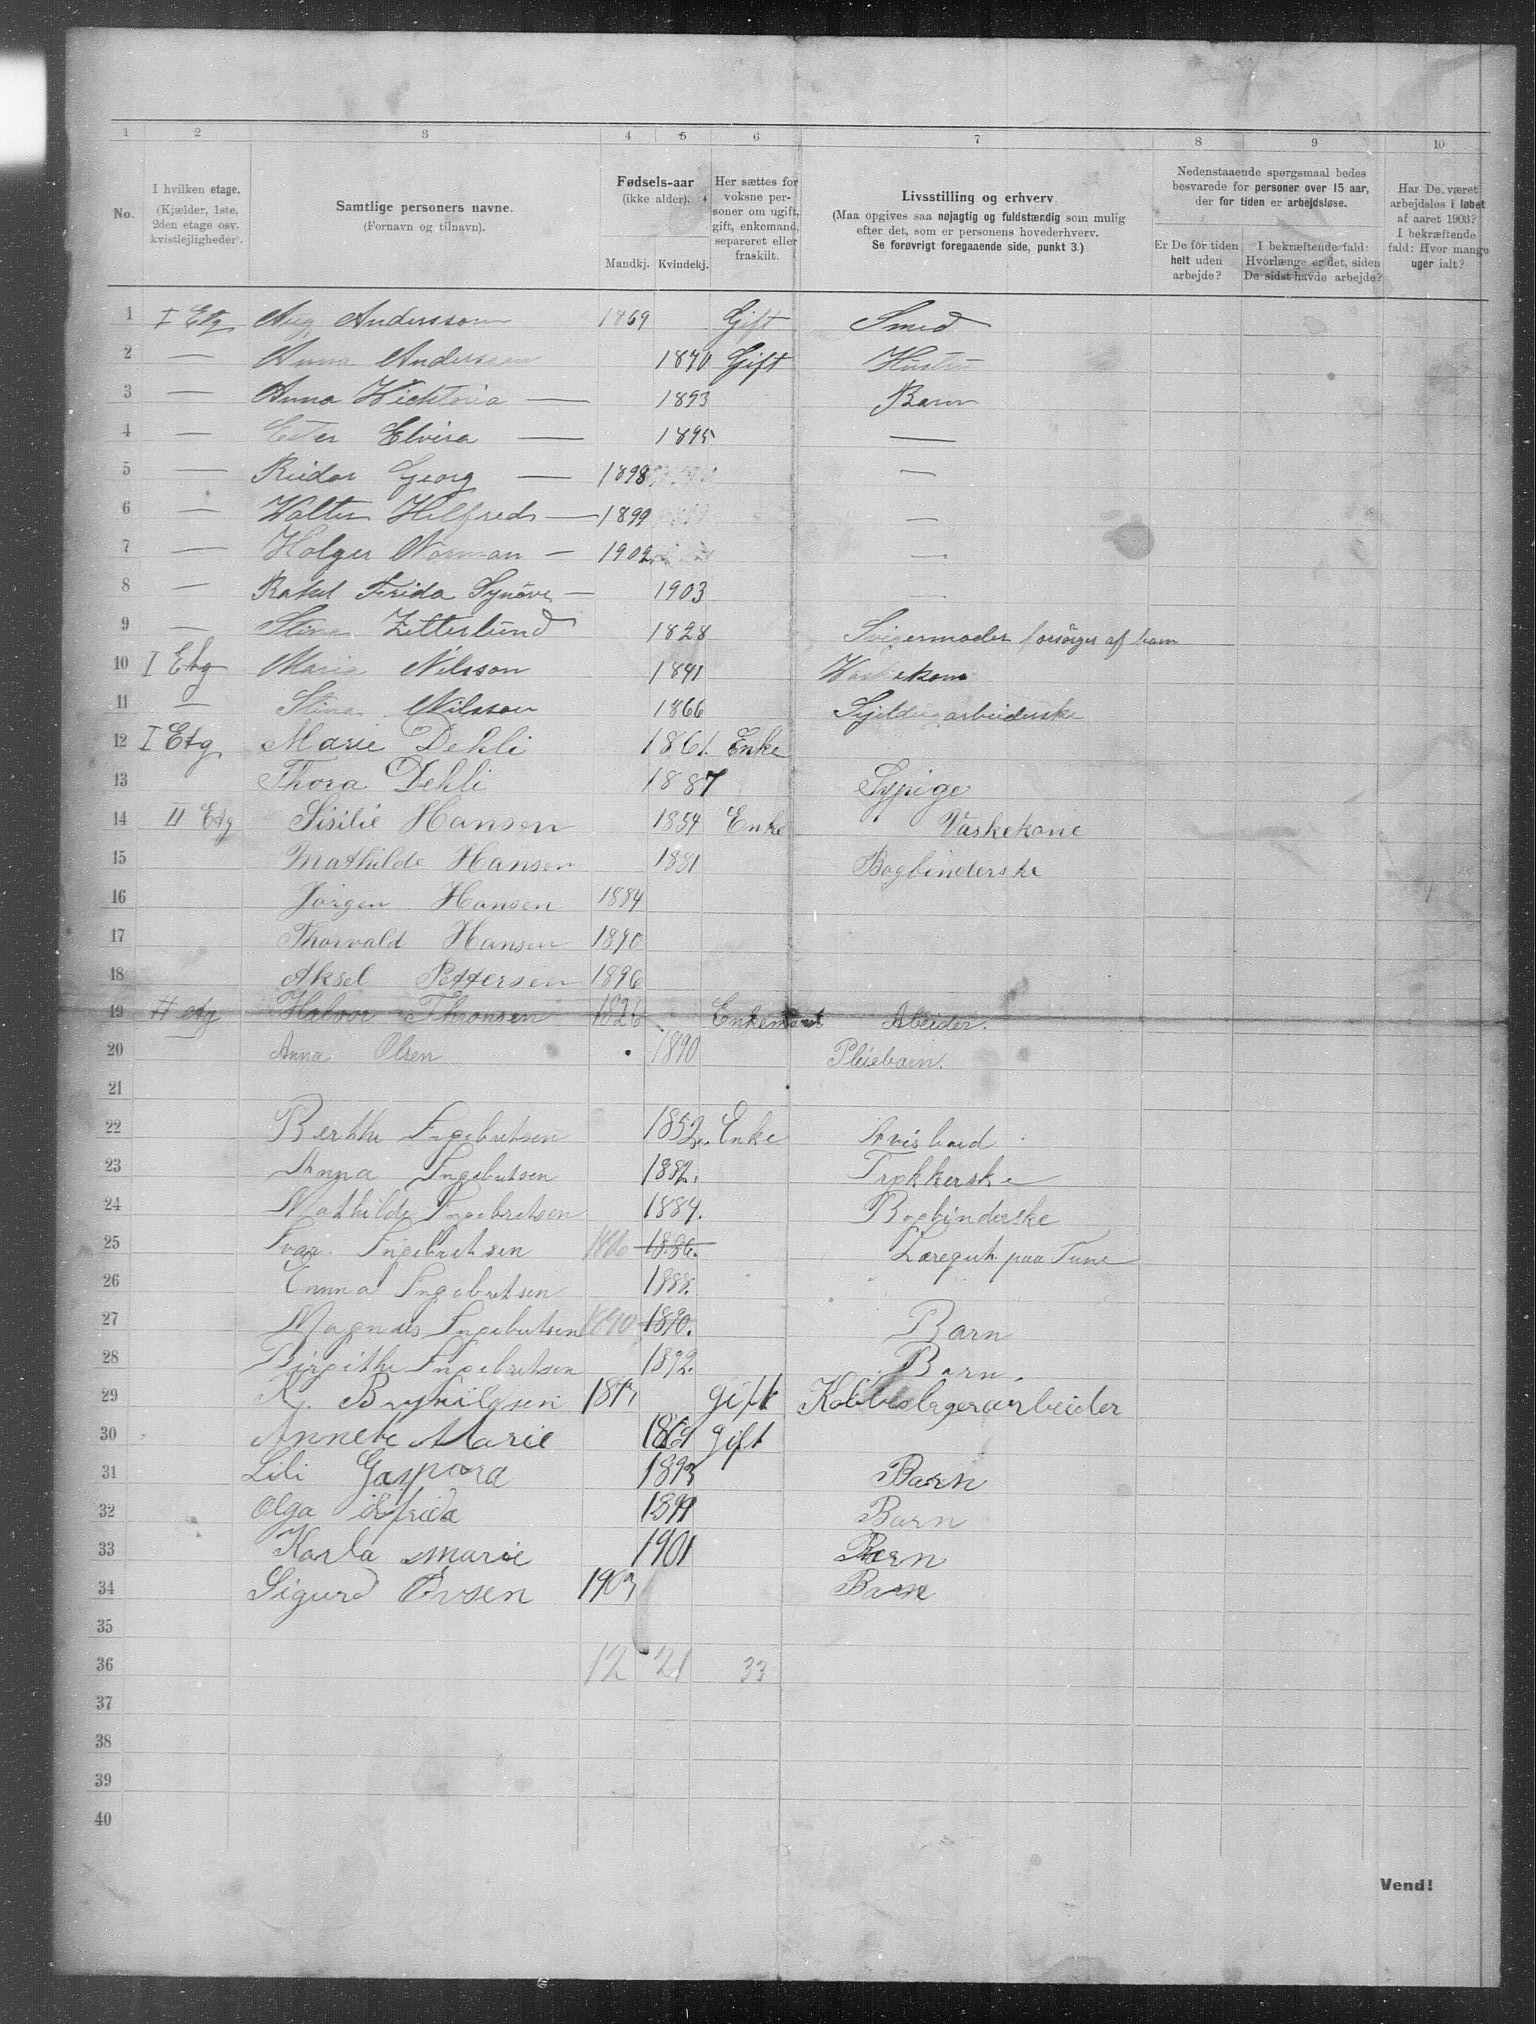 1 2 3 4 5 6 7 8 9 10
No.
I hvilken etage.
(Kjælder, 1ste,
2den etage osv.
kvistlejligheder).
Samtlige personers navne.
(Fornavn og tilnavn).
Fødsels-aar
(ikke alder).
Mandkj. Kvindekj.
Her sættes for
voksne per-
soner om ugift,
gift, enkemand,
separeret eller
fraskilt.
Livsstilling og erhverv.
(Maa opgives saa nøjagtig og fuldstændig som mulig
efter det, som er personens hovederhverv.
Se forøvrigt foregaaende side, punkt 3.)
Nedenstaaende spørgsmaal bedes
besvarede for personer over 15 aar,
der for tiden er arbejdsløse.
Er De for tiden
helt uden
arbejde?
I bekræftende fald:
Hvorlænge er det, siden
De sidst havde arbejde?
Har De været
arbejdsløs i løbet
af aaret 1903?
I bekræftende
fald: Hvor mange
uger ialt?
1 I Etg Aug Andersson 1869 Gift Smed
2 — Anna Andersson 1870 Gift Hustru
3 — Anna Wicktoria — 1893 Barn
4 — Ester Elvira — 1895 —
5 — Reidar Georg — 1898 —
6 — Walter Hilfred — 1899 —
7 — Holger Norman — 1902 —
8 — Rakel Frida Synöve — 1903 —
9 — Stina Zetterlund 1828 Svigermoder forsörges af ham
10 I Etg Maria Nilsson 1841 Vaskekone
11 — Stina Nilsson 1866 arbeiderske
12 I Etg Marie Dehli 1861. Enke
13 Thora Dehli 1887 Sypige
14 II Etg Sisilie Hansen 1854 Enke Vaskekone
15 Mathilde Hansen 1881 Bogbinderske
16 Jörgen Hansen 1884
17 Thorvald Hansen 1890
18 Aksel Pettersen 1896
19 II etg Halvor Thronsen 1826 Enkemand Abeider.
20 Anna Olsen 1890 Pleiebarn.
21
22 Berthe Ingebretsen 1852. Enke Avisbud
23 Anna Ingebretsen 1882. Trykkerske
24 Mathilde Ingebretsen 1884. Bogbinderske
25 Ivar Ingebretsen 1886 1886. Læregut paa Tune
26 Emma Ingebretsen 1888.
27 Magnus Ingebretsen 1890 1890. Barn
28 Birgithe Ingebretsen 1892. Barn.
29 K. Brynildsen 1873 gift Kobberslagerarbeider
30 Annete Marie gift
31 Lili Gaspora 1893 Barn
32 Olga Elfrida 1899 Barn
33 Karla Marie 1901 Barn
34 Sigurd Orsen 1903 Barn
35
36 12 21 33
37
38
39
40
Vend!